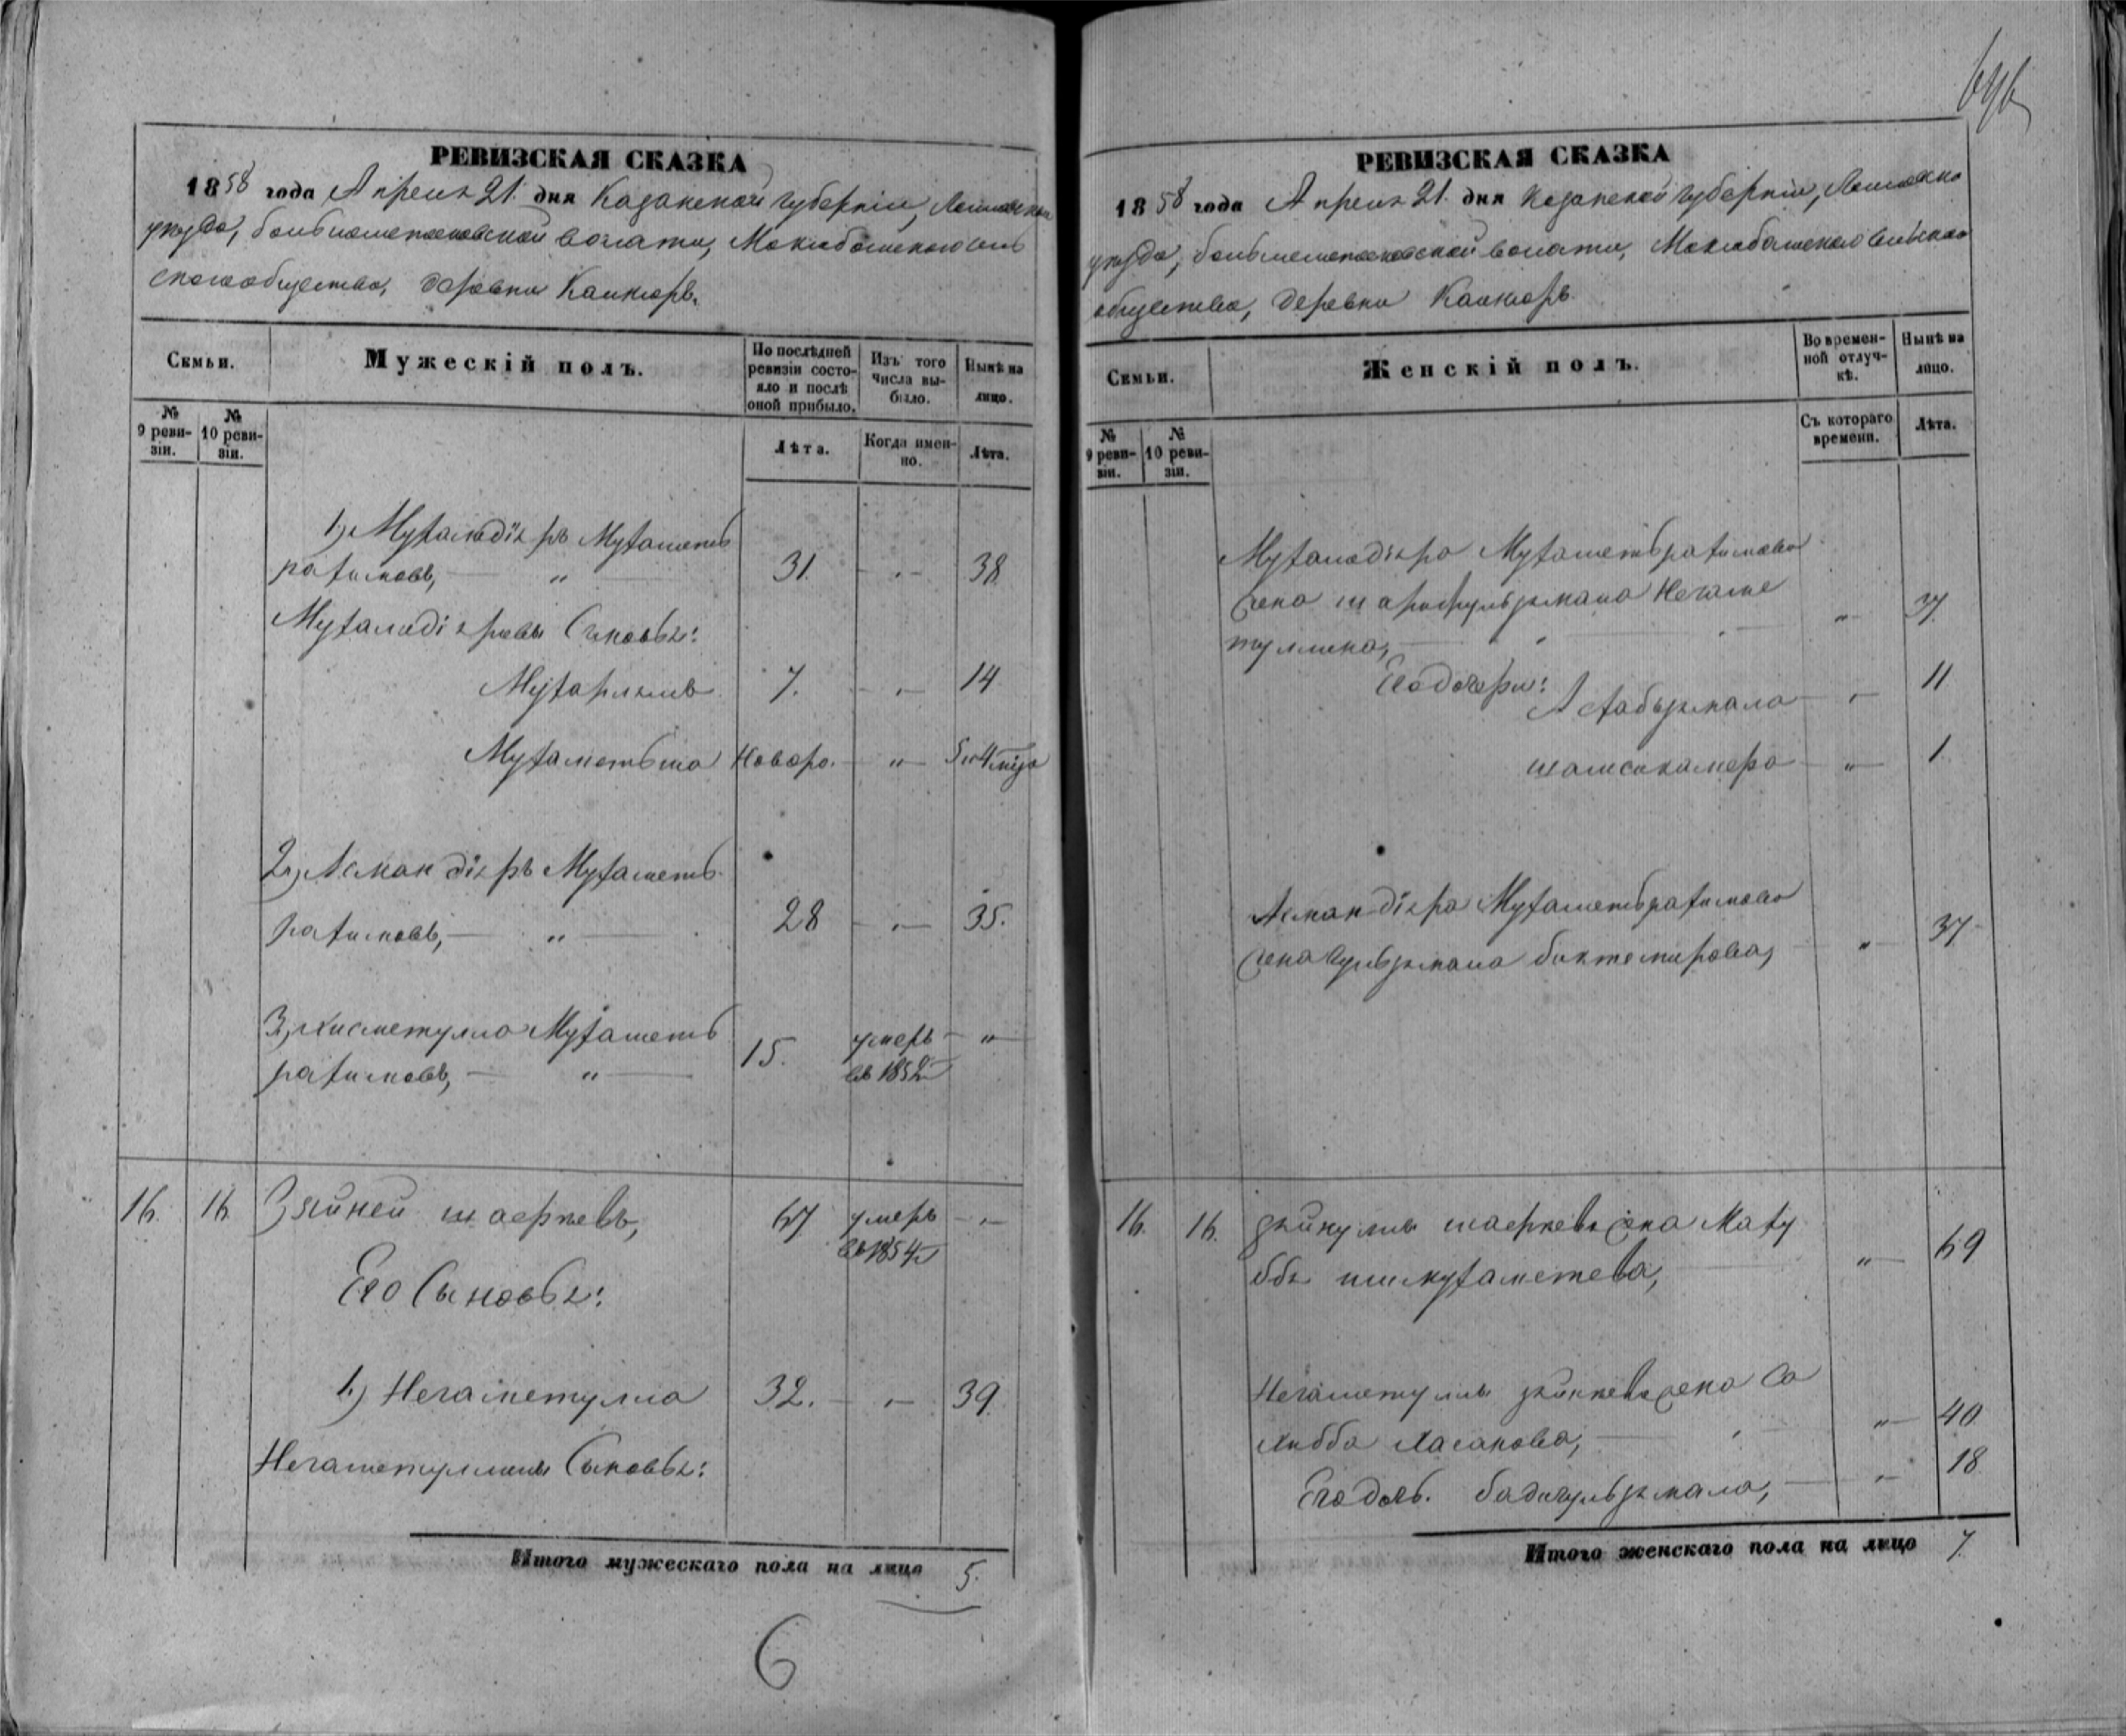 РЕВИЗСКАЯ СКАЗКА
1858 года Апреля 21. дня Казанской губерніи, Лаишевска
уезда, больше волости, Макла
скаго общества, деревни Каинюрь.
Семьи.
Мужескій полъ.
По послѣдней ревизіи состояло и послѣ оной прибыло.
Изъ того числа выбыло.
Нынѣ на лицо.
№ 9 ревизіи.
№ 10 ревизіи.
Лѣта.
Когда именно.
Лѣта.
1) Муха дiяръ Мухаметь
рахимовъ, — " — 31. — " — 38
Муха дiяровы Сыновья:
7. — " — 14
Мухаметьша Новоро. — " — 5 и 4 мѣся
2) Асмандiяръ Мухаметь
рахимовъ, — " — 28 — " — 35.
3) Хисметулла Мухаметь
рахимовъ, — " — 15. умеръ въ 1852 — " —
16. 16 Зяйней шаеркевъ, 67 умеръ въ 1854 — " —
Его Сыновья:
1.) Негаметулла 32. — " — 39.
Негаметуллины Сыновья:
Итого мужескаго пола на лицо 5.
6
РЕВИЗСКАЯ СКАЗКА
1858 года Апреля 21. дня Казанской губерніи, Лаишевско
уезда, больше волости, сельскаго
общества, деревни Каинюрь.
Семьи.
Женскій полъ.
Во временной отлучкѣ.
Нынѣ на лицо.
№ 9 ревизіи.
№ 10 ревизіи.
Съ котораго времени.
Лѣта.
Муха дiяра Мухаметьрахимова
жена Негаме
туллина, — " —
Его дочери:
— " — 11
шамсикамера — " — 1.
Асмандiяра Мухаметьрахимова
жена Гульзямала биктемирова, — " — 37
16. 16. шаеркева жена Маху
ббя ишмухаметева, — " — 69
Негаметуллы зяйнеева жена Са
хибба Хасанова, — " — 40
Его дочь. бадигульзямала, — " — 18
Итого женскаго пола на лицо 7.